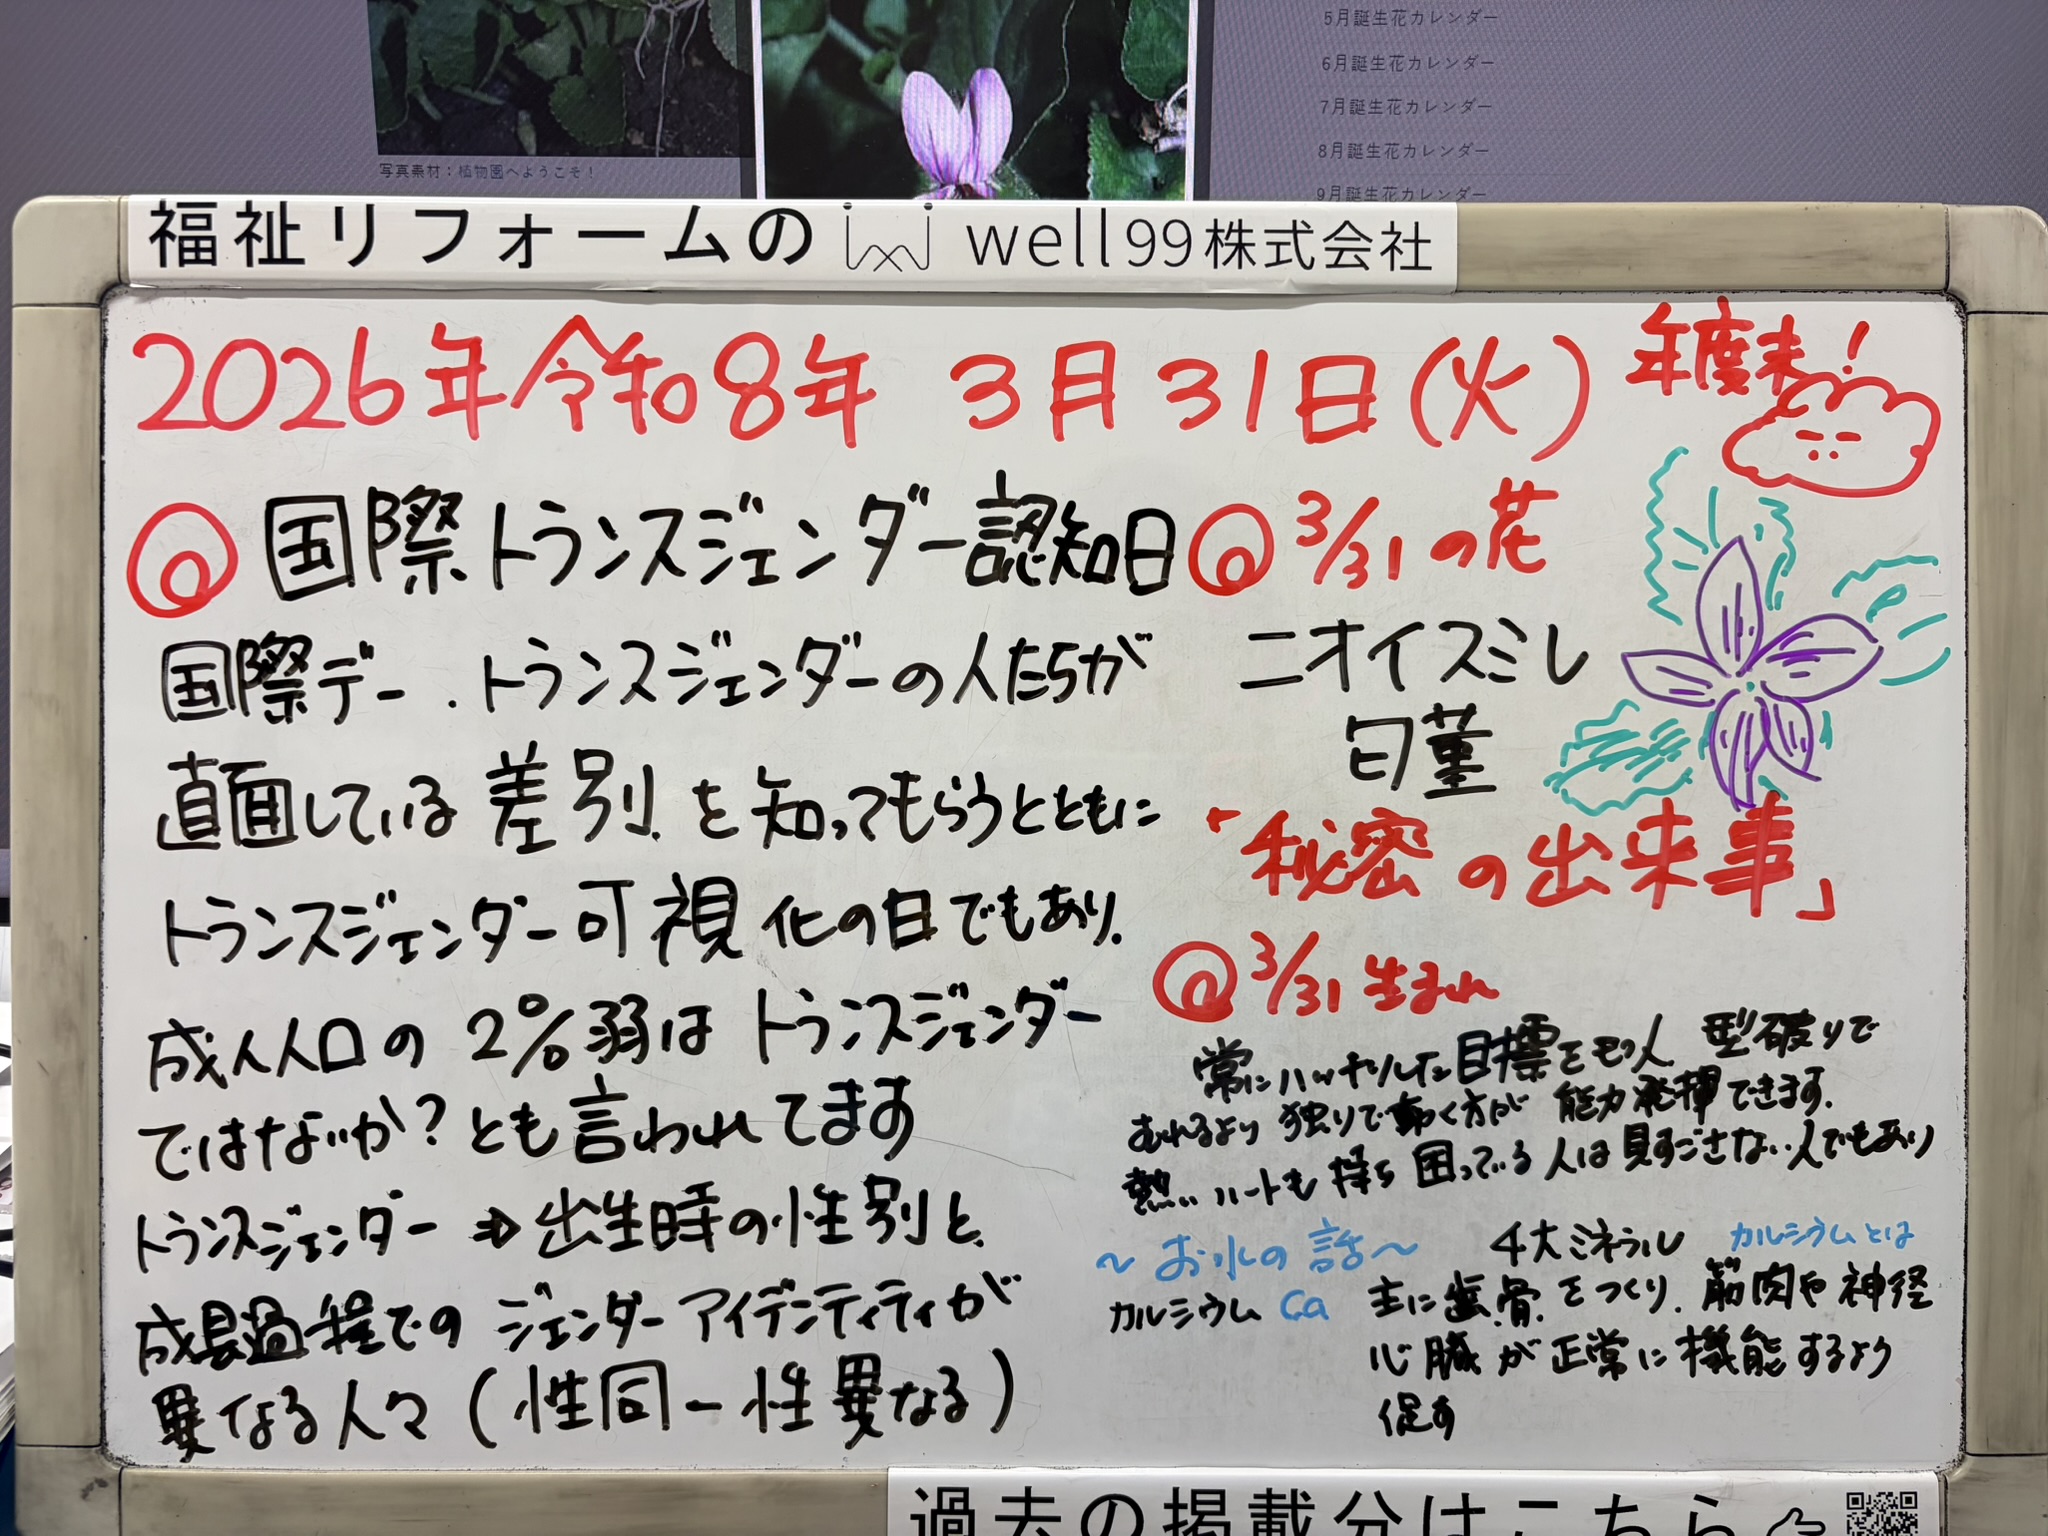 5月誕生花カレンダー
6月誕生花カレンダー
7月誕生花カレンダー
8月誕生花カレンダー
9月誕生花カレンダー
写真素材：植物園へようこそ！
福祉リフォームの well99株式会社
2026年令和8年 3月31日(火) 年度末！
国際トランスジェンダー認知日
国際デー．トランスジェンダーの人たちが
直面している差別を知ってもらうとともに
トランスジェンダー可視化の日でもあり．
成人人口の2％弱はトランスジェンダー
ではないか？とも言われてます
トランスジェンダー⇒出生時の性別と、
成長過程でのジェンダーアイデンティティが
異なる人々(性同一性異なる)
3/31の花
ニオイスミレ
匂菫
「秘密の出来事」
3/31生まれ
常にハッキリした目標をもつ人 型破りで
むれるより独りで動く方が能力発揮できます．
熱いハートも持ち困っている人は見すごさない人でもあり
～お水の話～ 4大ミネラル カルシウムとは
カルシウム Ca 主に歯、骨をつくり．筋肉や神経
心臓が正常に機能するよう
促す
過去の掲載分はこちら